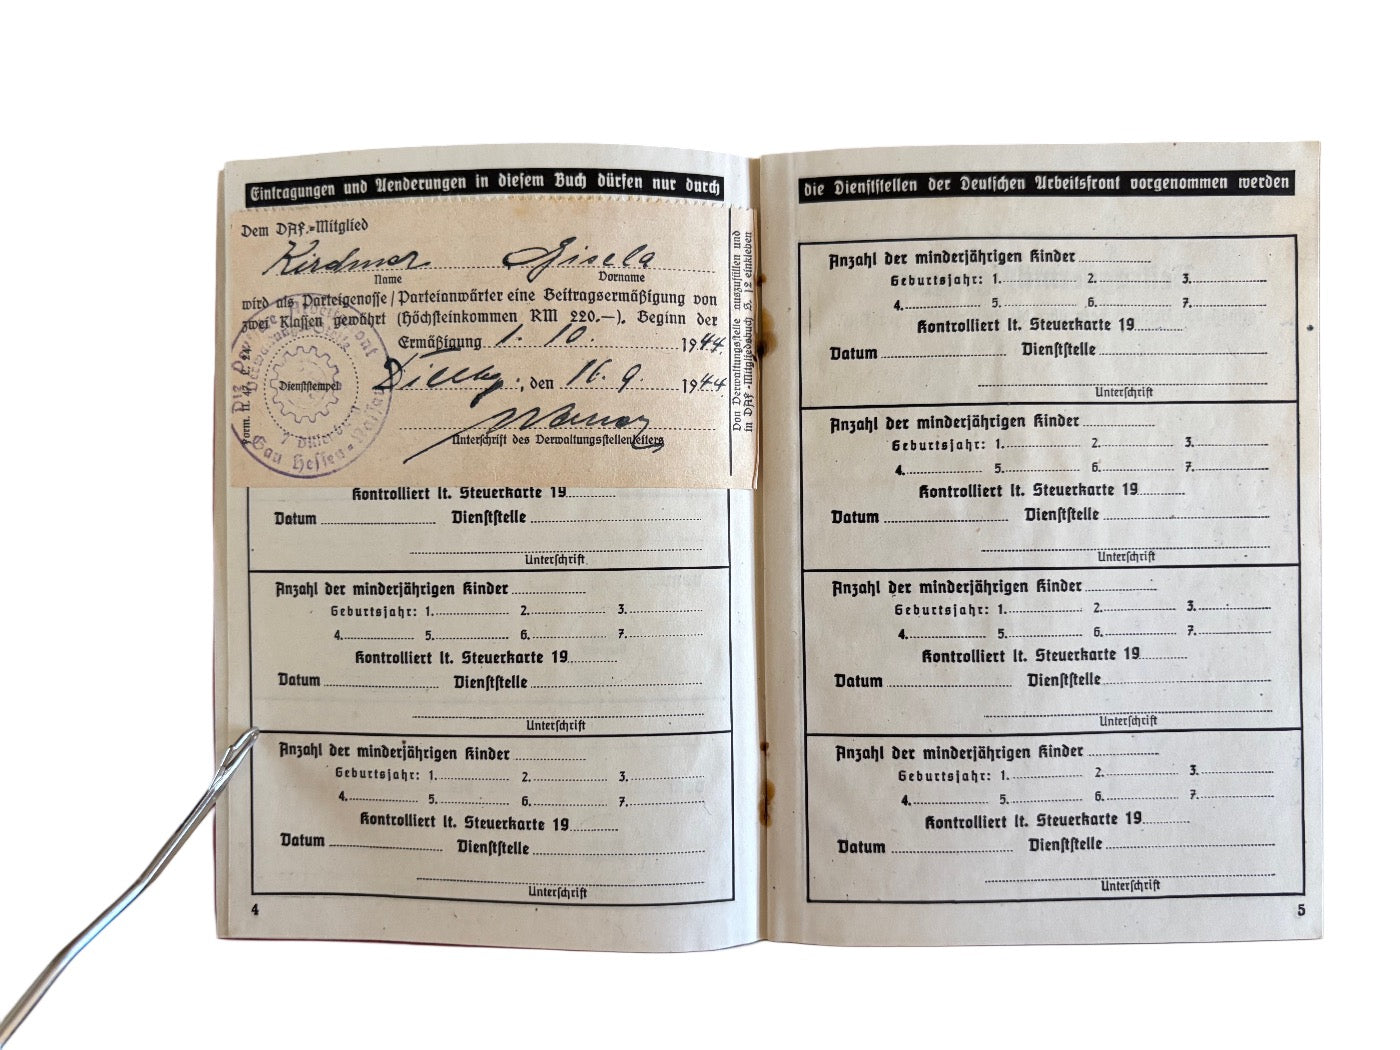 Eintragungen und Aenderungen in diesem Buch dürfen nur durch
Dem DAF.-Mitglied
Gisela
Name Vorname
wird als Parteigenosse/Parteianwärter eine Beitragsermäßigung von
zwei Klassen gewährt (Höchsteinkommen RM 220.—). Beginn der
Ermäßigung 1. 10. 1944.
, den 16. 9. 1944.
Unterschrift des Verwaltungsstellenleiters
Dienststempel
Gau Hessen-Nassau
Von Verwaltungsstelle auszufüllen und
in DAF.-Mitgliedsbuch S. 12 einkleben
Kontrolliert lt. Steuerkarte 19
Datum Dienststelle
Unterschrift
Anzahl der minderjährigen Kinder
Geburtsjahr: 1. 2. 3.
4. 5. 6. 7.
Kontrolliert lt. Steuerkarte 19
Datum Dienststelle
Unterschrift
Anzahl der minderjährigen Kinder
Geburtsjahr: 1. 2. 3.
4. 5. 6. 7.
Kontrolliert lt. Steuerkarte 19
Datum Dienststelle
Unterschrift
4
die Dienststellen der Deutschen Arbeitsfront vorgenommen werden
Anzahl der minderjährigen Kinder
Geburtsjahr: 1. 2. 3.
4. 5. 6. 7.
Kontrolliert lt. Steuerkarte 19
Datum Dienststelle
Unterschrift
Anzahl der minderjährigen Kinder
Geburtsjahr: 1. 2. 3.
4. 5. 6. 7.
Kontrolliert lt. Steuerkarte 19
Datum Dienststelle
Unterschrift
Anzahl der minderjährigen Kinder
Geburtsjahr: 1. 2. 3.
4. 5. 6. 7.
Kontrolliert lt. Steuerkarte 19
Datum Dienststelle
Unterschrift
Anzahl der minderjährigen Kinder
Geburtsjahr: 1. 2. 3.
4. 5. 6. 7.
Kontrolliert lt. Steuerkarte 19
Datum Dienststelle
Unterschrift
5